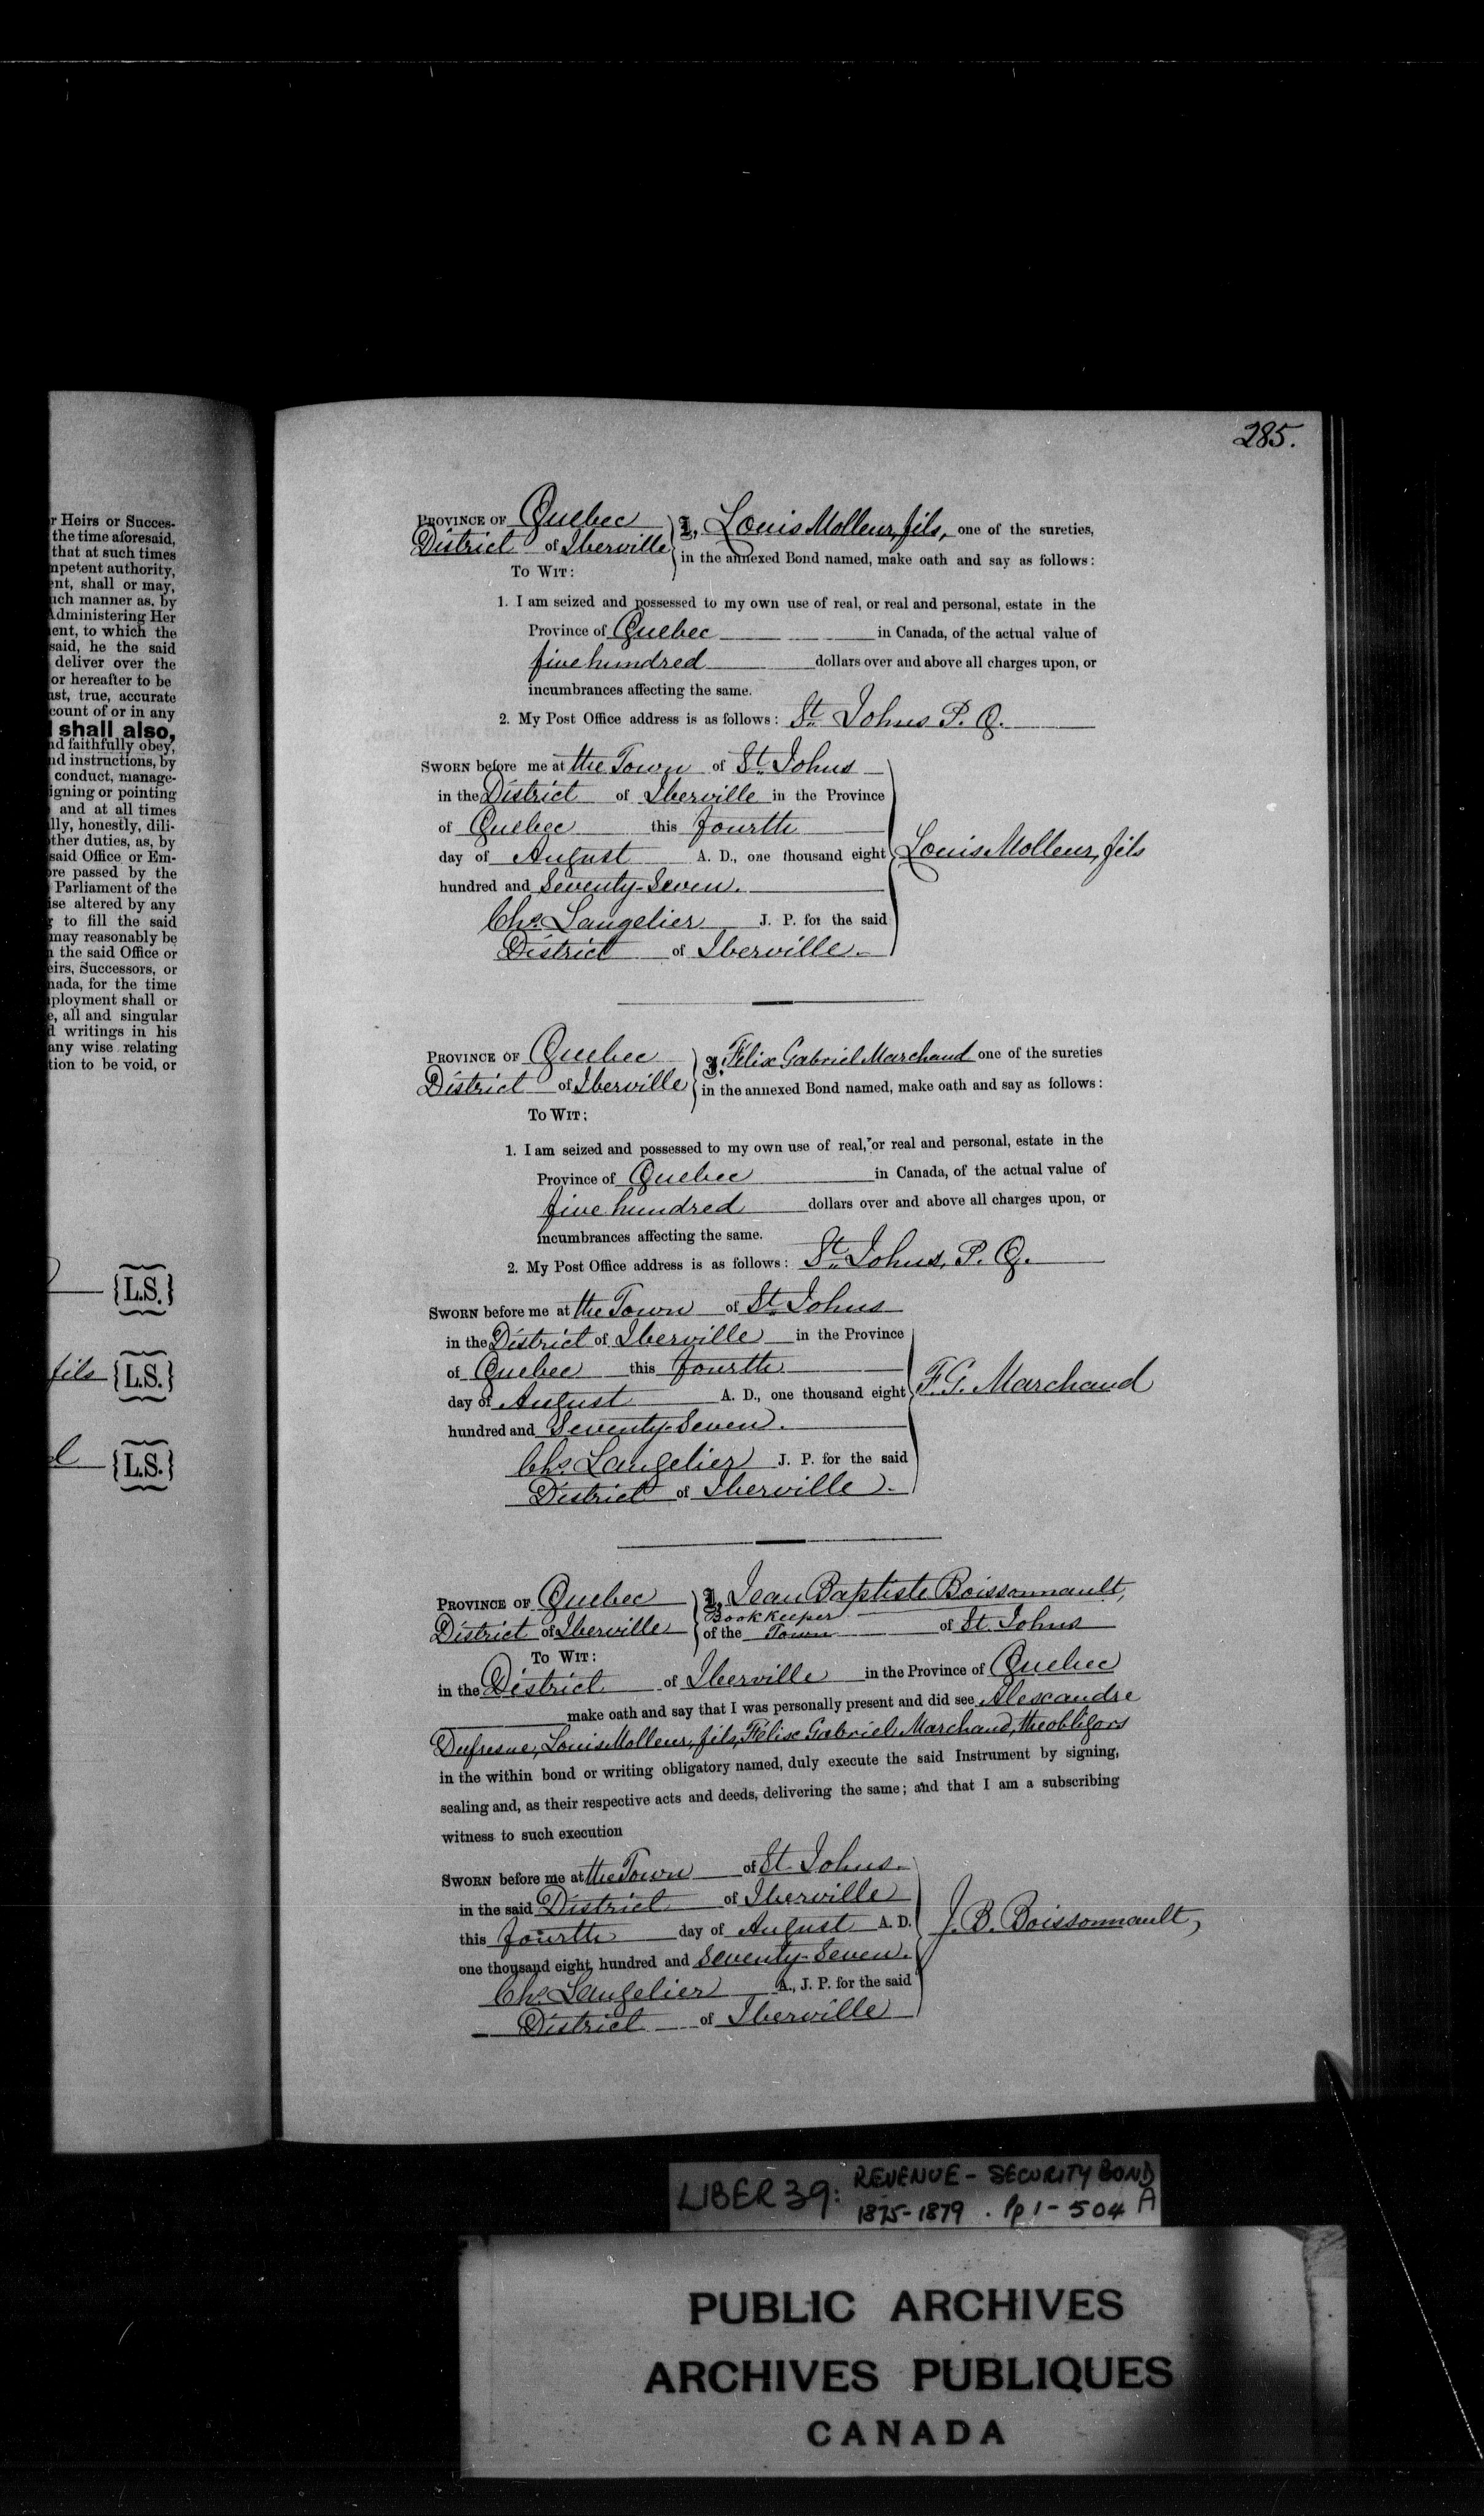 r Heirs or Succes-
the time aforesaid,
that at such times
mpetent authority,
ent, shall or may,
uch manner as, by
Administering Her
ent, to which the
said, he the said
deliver over the
or hereafter to be
ust, true, accurate
count of or in any
shall also,
nd faithfully obey,
nd instructions, by
conduct, manage-
igning or pointing
and at all times
lly, honestly, dili-
ther duties, as, by
said Office or Em-
ore passed by the
Parliament of the
ise altered by any
to fill the said
may reasonably be
the said Office or
eirs, Successors, or
nada, for the time
ployment shall or
e, all and singular
d writings in his
any wise relating
tion to be void, or
{L.S.}
fils {L.S.}
{L.S.}
285.
PROVINCE OF Quebec } I, Louis Molleur, fils, one of the sureties,
District of Iberville } in the annexed Bond named, make oath and say as follows:
TO WIT:
1. I am seized and possessed to my own use of real, or real and personal, estate in the
Province of Quebec in Canada, of the actual value of
five hundred dollars over and above all charges upon, or
incumbrances affecting the same.
2. My Post Office address is as follows: St. Johns P. Q.
SWORN before me at the Town of St. Johns
in the District of Iberville in the Province
of Quebec this fourth
day of August A. D., one thousand eight } Louis Molleur, fils
hundred and Seventy-Seven.
Chs. Langelier J. P. for the said
District of Iberville.
PROVINCE OF Quebec } I, Félix Gabriel Marchand one of the sureties
District of Iberville } in the annexed Bond named, make oath and say as follows:
TO WIT:
1. I am seized and possessed to my own use of real, or real and personal, estate in the
Province of Quebec in Canada, of the actual value of
five hundred dollars over and above all charges upon, or
incumbrances affecting the same.
2. My Post Office address is as follows: St. Johns, P. Q.
SWORN before me at the Town of St. Johns
in the District of Iberville in the Province
of Quebec this fourth
day of August A. D., one thousand eight } F. G. Marchand
hundred and Seventy-Seven.
Chs. Langelier J. P. for the said
District of Iberville.
PROVINCE OF Quebec } I, Jean Baptiste Boissonnault,
Bookkeeper
District of Iberville } of the Town of St. Johns
TO WIT:
in the District of Iberville in the Province of Quebec
make oath and say that I was personally present and did see Alexandre
Dufresne, Louis Molleur, fils, Félix Gabriel Marchand, the obligors
in the within bond or writing obligatory named, duly execute the said Instrument by signing,
sealing and, as their respective acts and deeds, delivering the same; and that I am a subscribing
witness to such execution
SWORN before me at the Town of St. Johns.
in the said District of Iberville
this fourth day of August A. D. } J. B. Boissonnault,
one thousand eight hundred and Seventy-Seven.
Chs. Langelier A., J. P. for the said
District of Iberville
LIBER 39: REVENUE - SECURITY BOND
1875-1879 . Pp 1 - 504 A
PUBLIC ARCHIVES
ARCHIVES PUBLIQUES
CANADA